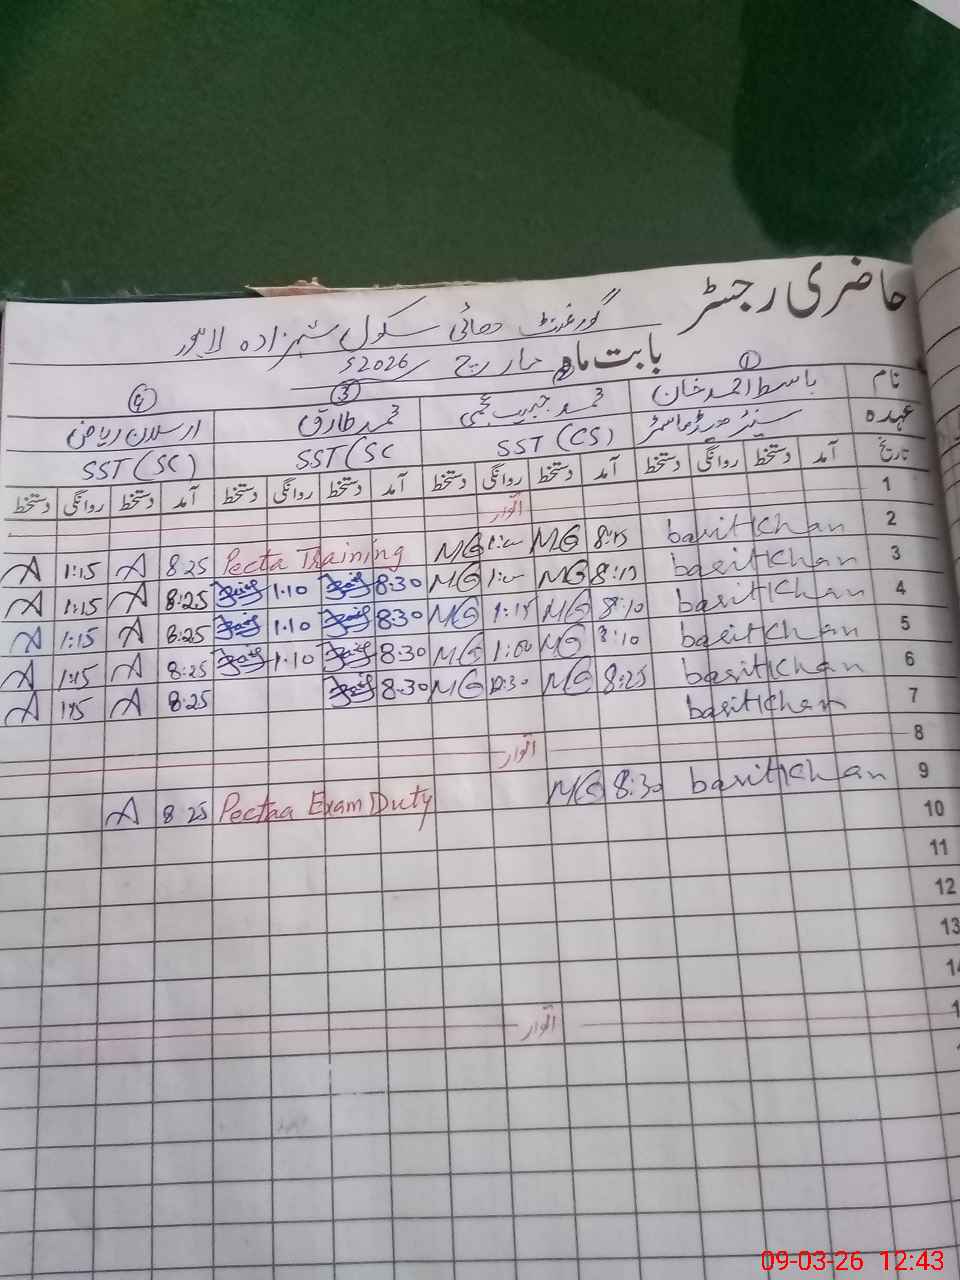 حاضری رجسٹر
گورنمنٹ ھائی سکول شہزادہ لاہور
بابت ماہ مارچ 2026ء
نام ① باسط احمد خان محمد حبیب ③ محمد طارق ④ ارسلان ریاض
عہدہ سنیئر ہیڈ ماسٹر SST (CS) SST (SC SST (SC)
تاریخ آمد دستخط روانگی دستخط آمد دستخط روانگی دستخط آمد دستخط روانگی دستخط آمد دستخط روانگی دستخط
1 اتوار
2 basit Khan 8:15 MG MG Pecta Training 8:25 A 1:15 A
3 basit Khan MG MG 8:30 1.10 8:25 A 1:15 A
4 basit Khan 8:10 MG 1:15 MG 8:30 1.10 8:25 A 1:15 A
5 basit Khan 8:10 MG 1:00 MG 8:30 1.10 8:25 A 1:15 A
6 basit Khan 8:25 MG 12:30 MG 8.30 8:25 A A
7 basit Khan
8 اتوار
9 basit Khan 8:30 MG Pectaa Exam Duty 8 25 A
10
11
12
13
اتوار
09-03-26 12:43